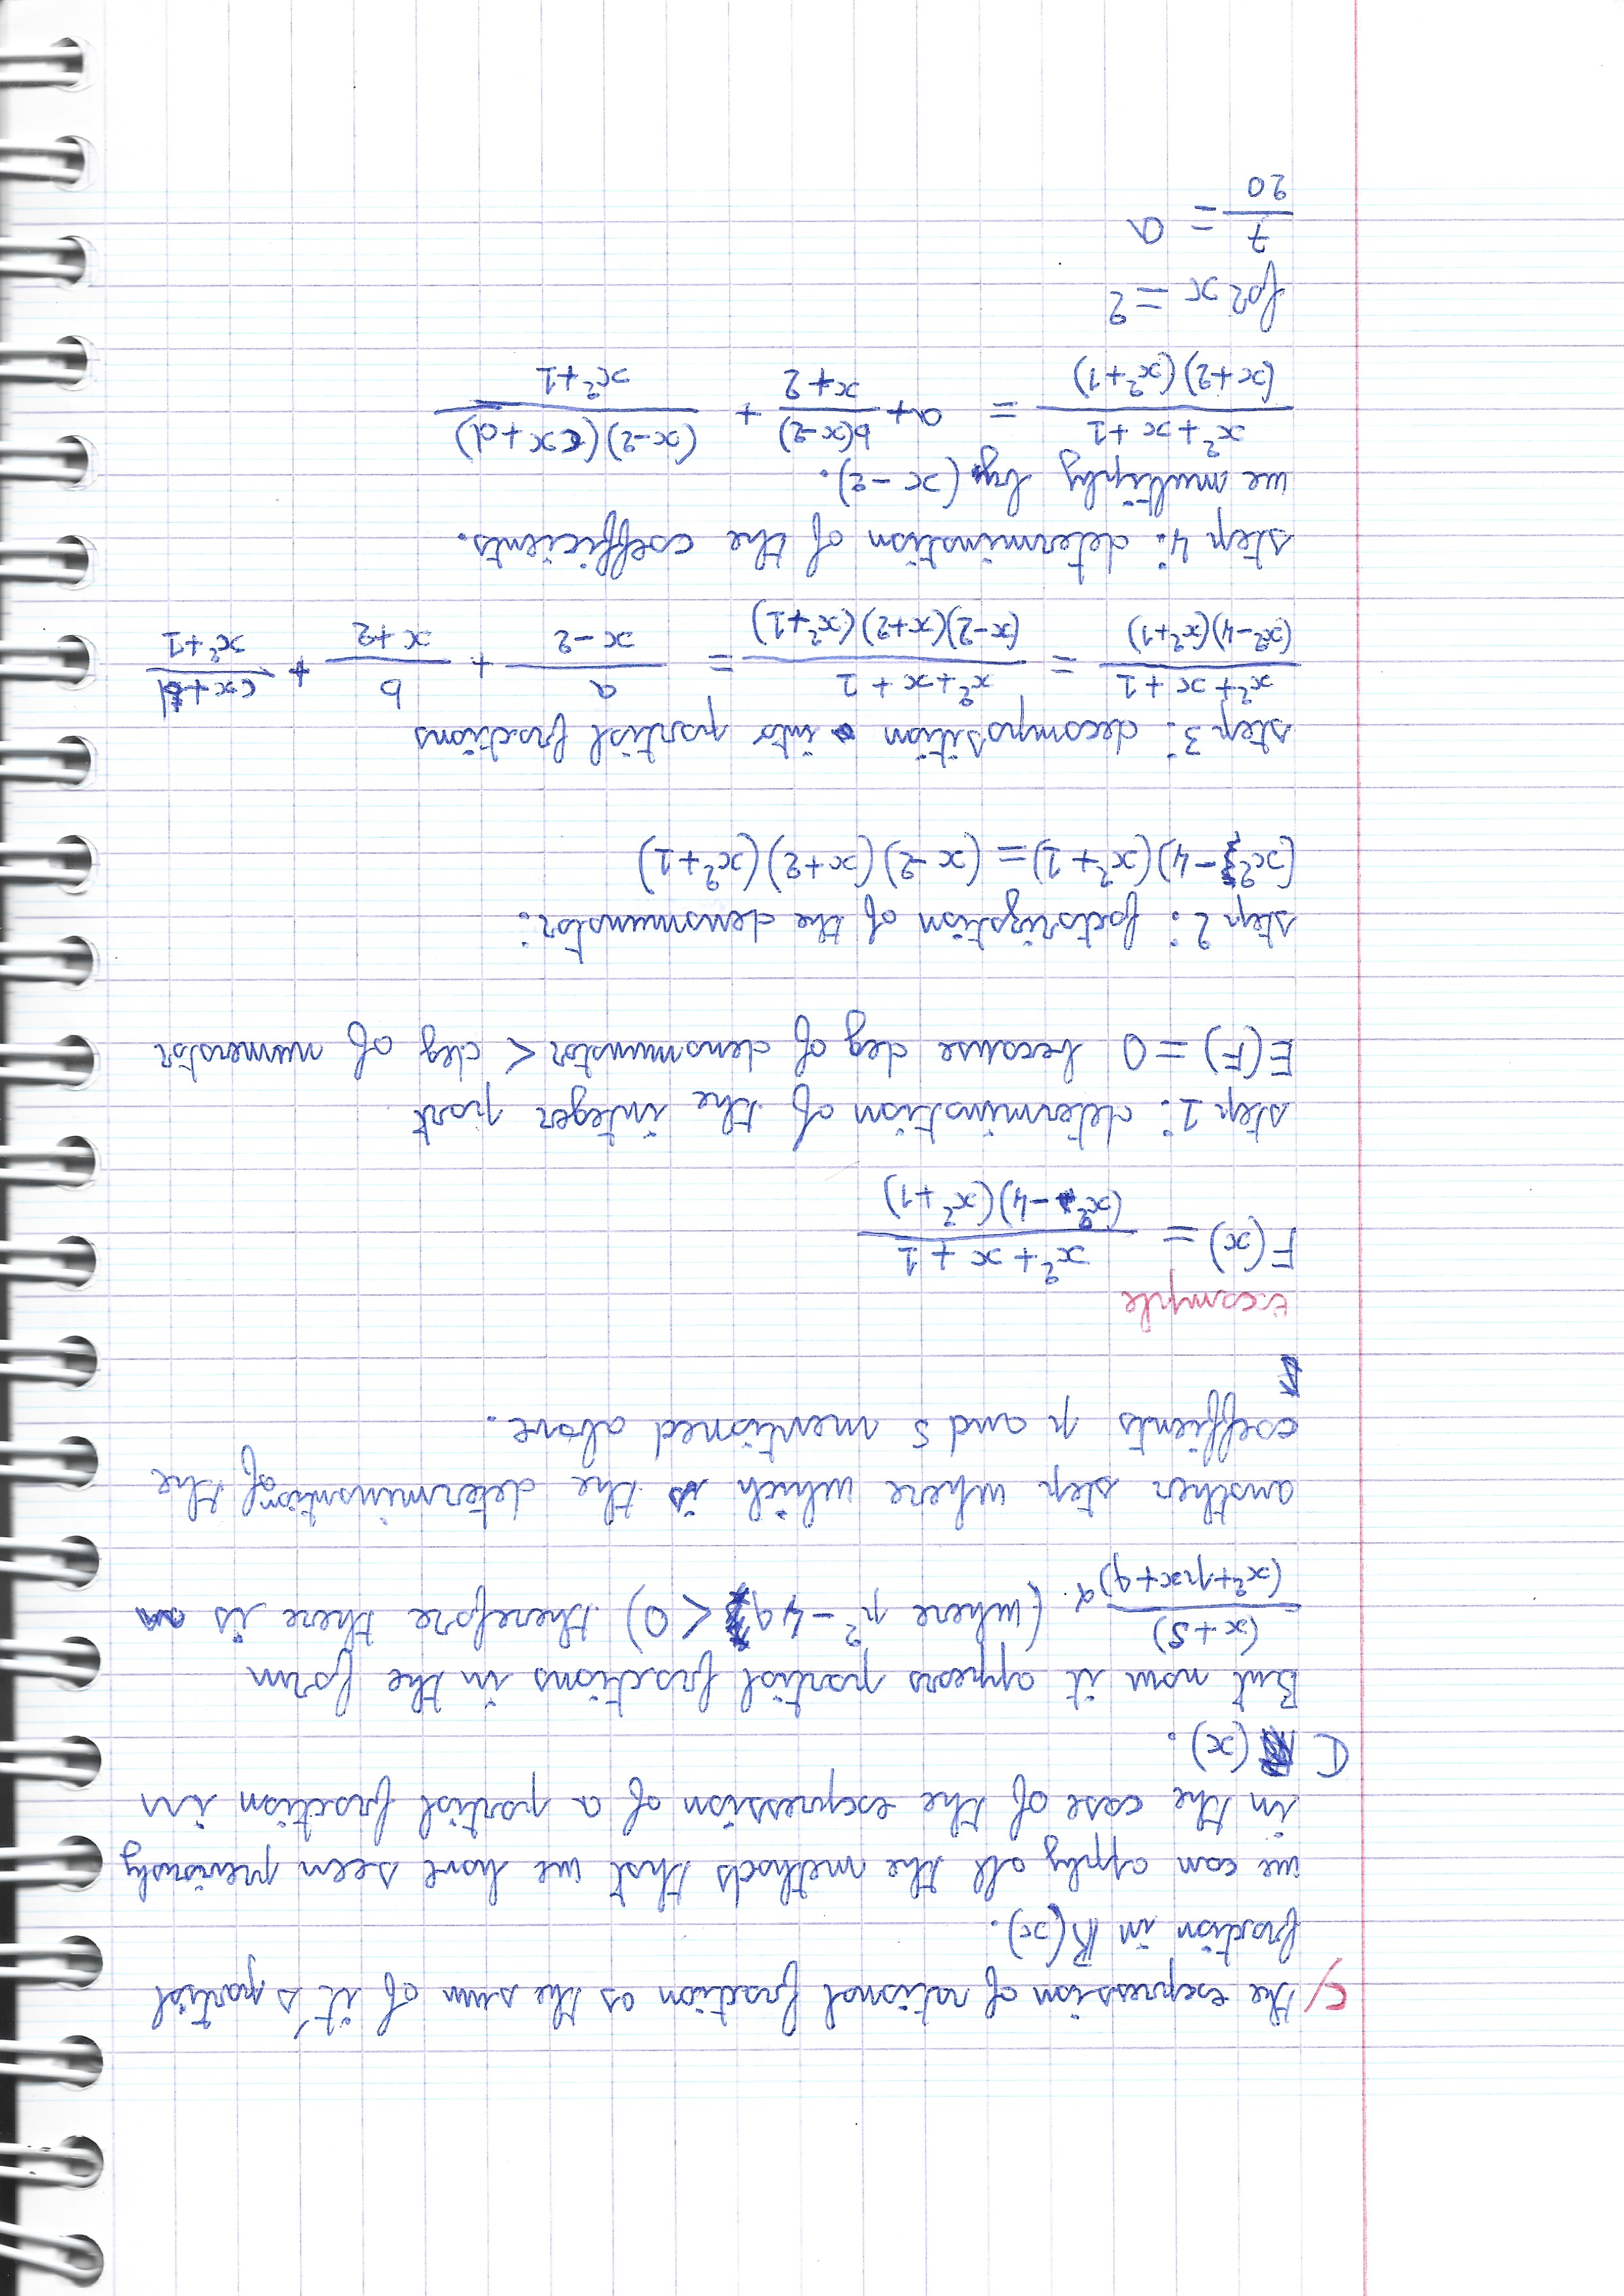 c/ the expression of rational fraction as the sum of it's partial
fraction in ℝ(x).
we can apply all the methods that we have seen previously
in the case of the expression of a partial fraction in
ℂ (x).
But now it appears partial fractions in the form
(x+s)/(x²+px+q)^α (where p²-4q < 0) therefore there is an
another step where which is the determination of the
coeffients p and s mentioned above.
example
F(x) = (x²+x+1)/((x²-4)(x²+1))
step 1: determination of the integer part
E(F) = 0 because deg of denominator < deg of numerator
step 2: factorization of the denominator:
(x²-4)(x²+1) = (x-2)(x+2)(x²+1)
step 3: decomposition into partial fractions
(x²+x+1)/((x²-4)(x²+1)) = (x²+x+1)/((x-2)(x+2)(x²+1)) = a/(x-2) + b/(x+2) + (cx+d)/(x²+1)
step 4: determination of the coefficients.
we multiply by (x-2).
(x²+x+1)/((x+2)(x²+1)) = a + b(x-2)/(x+2) + (x-2)(cx+d)/(x²+1)
for x = 2
7/20 = a